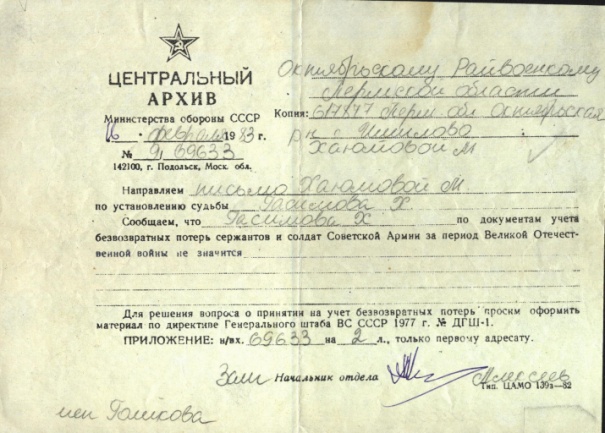 ЦЕНТРАЛЬНЫЙ
АРХИВ
Министерства обороны СССР
16 февраля 1983 г.
№ 9/69633
142100, г. Подольск, Моск. обл.
Октябрьскому Райвоенкому
Пермской области
Копия: 617877 Перм. обл. Октябрьская
р-н с.
Хаюмовой М
Направляем письмо Хаюмовой М
по установлению судьбы Гасимова Х.
Сообщаем, что Гасимова Х по документам учета
безвозвратных потерь сержантов и солдат Советской Армии за период Великой Отечест-
венной войны не значится
Для решения вопроса о принятии на учет безвозвратных потерь просим оформить
материал по директиве Генерального штаба ВС СССР 1977 г. № ДГШ-1.
ПРИЛОЖЕНИЕ: н/вх. 69633 на 2 л., только первому адресату.
Начальник отдела Алексеев
Тип. ЦАМО 139з—82
исп Голикова